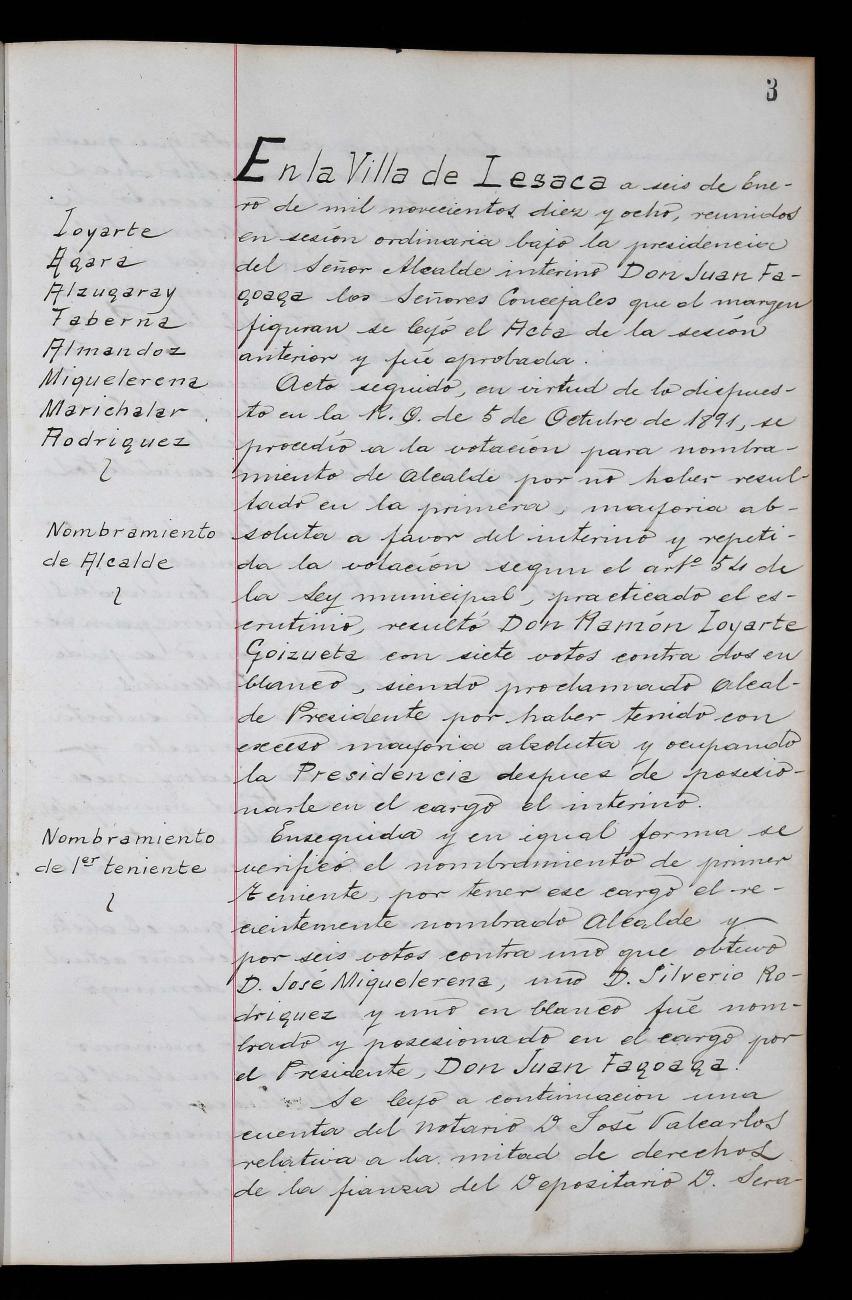 3
Loyarte
Agara
Alzugaray
Taberna
Almandoz
Miquelerena
Marichalar
Rodriguez
Nombramiento
de Alcalde
Nombramiento
de 1er teniente
En la Villa de Lesaca a seis de Ene-
ro de mil novecientos diez y ocho, reunidos
en sesión ordinaria bajo la presidencia
del Señor Alcalde interino Don Juan Fa-
goaga los Señores Concejales que al margen
figuran se leyó el Acta de la sesión
anterior y fué aprobada.
Acto seguido, en virtud de lo dispues-
to en la R. O. de 5 de Octubre de 1891, se
procedió a la votación para nombra-
miento de Alcalde por no haber resul-
tado en la primera, mayoria ab-
soluta a favor del interino y repeti-
da la votación segun el artº 54 de
la Ley municipal, practicado el es-
crutinio, resultó Don Ramón Loyarte
Goizueta con siete votos contra dos en
blanco, siendo proclamado Alcal-
de Presidente por haber tenido con
exceso mayoria absoluta y ocupando
la Presidencia despues de posesio-
narle en el cargo el interino.
Enseguida y en igual forma se
verificó el nombramiento de primer
teniente, por tener ese cargo el re-
cientemente nombrado Alcalde y
por seis votos contra uno que obtuvo
D. José Miquelerena, uno D. Silverio Ro-
driguez y uno en blanco fué nom-
brado y posesionado en el cargo por
el Presidente, Don Juan Fagoaga.
Se leyó a continuacion una
cuenta del Notario D. José Valcarlos
relativa a la mitad de derechos
de la fianza del Depositario D. Sera-